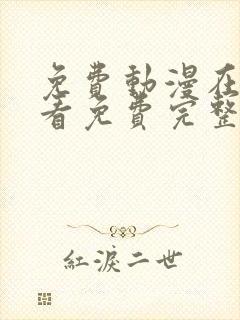 免費動漫在
看免費完整
紅淚二世